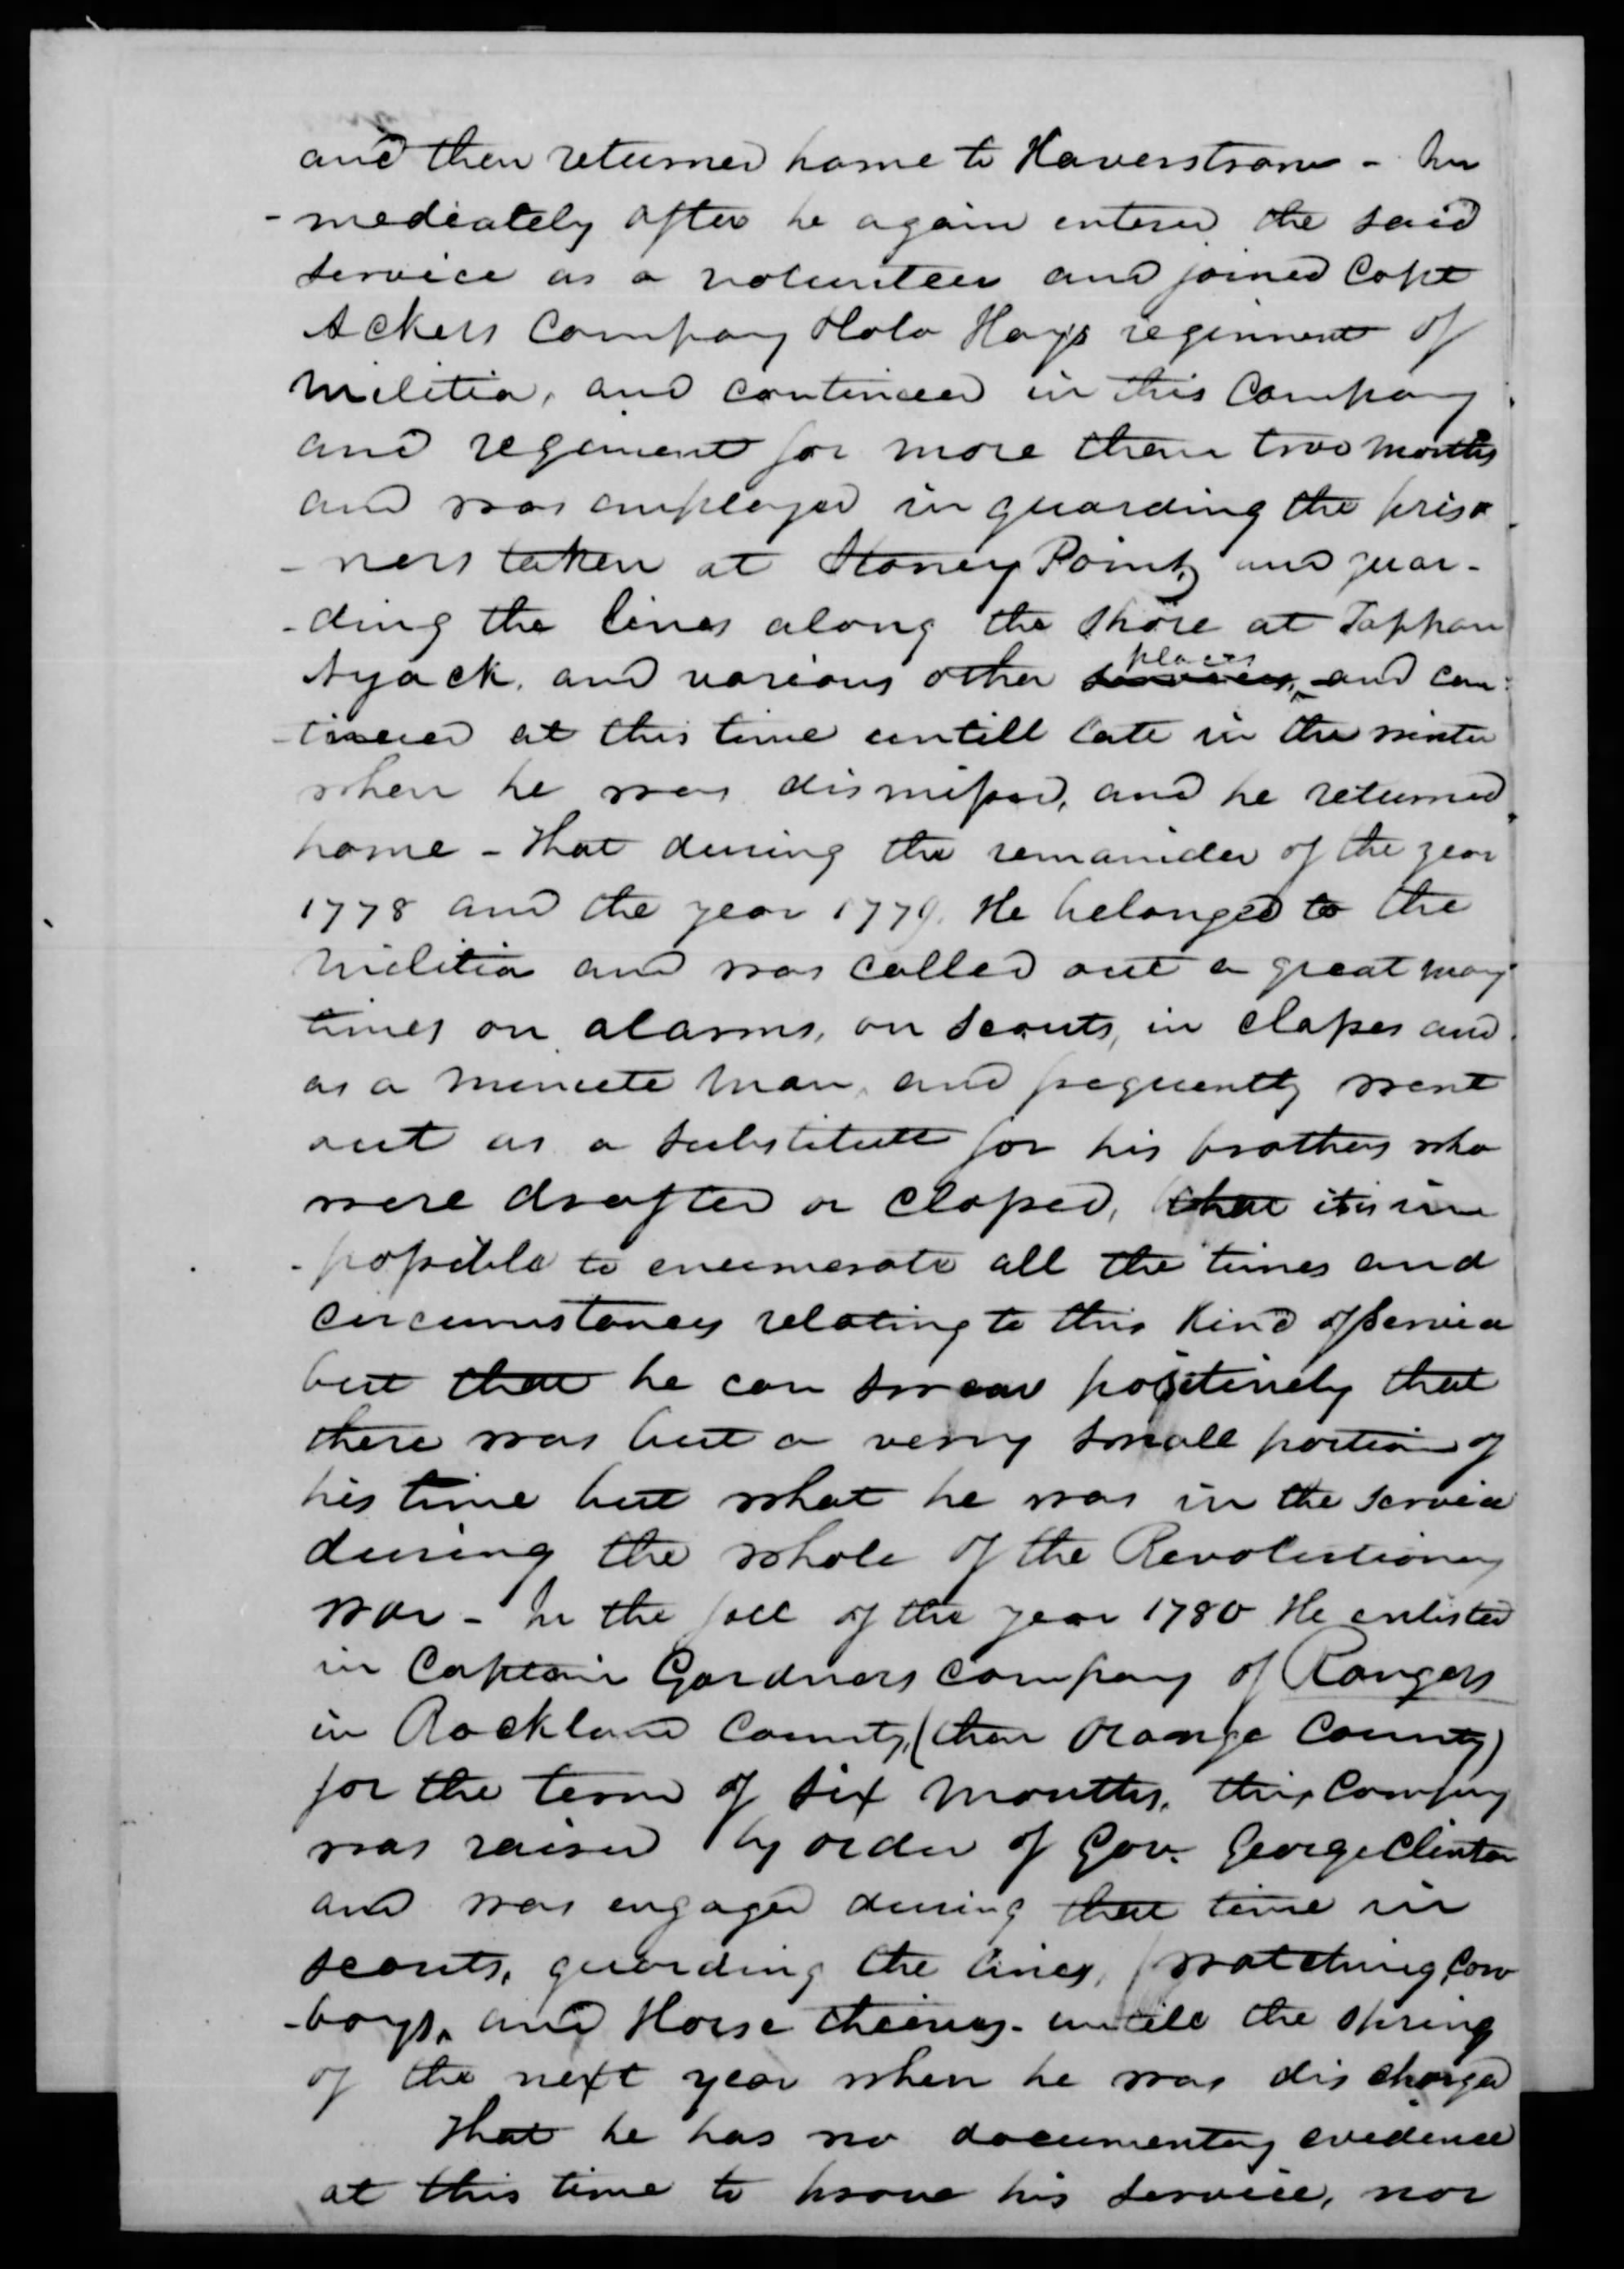 and then returned home to Haverstraw - Im
- mediately after he again entered the said
service as a volunteer and joined Capt
Ackers Company Cols Hays regiment of
militia, and continued in this Company
and regiment for more than two months
and was employed in guarding the priso
- ners taken at Stoney Point, and guar-
- ding the lines along the shore at Tappan
Nyack, and various other places and con
- tinued at this time untill late in the winter
when he was dismissed, and he returned
home - That during the remainder of the year
1778 and the year 1779. He belonged to the
militia and was called out a great many
times on alarms, on scouts, in classes and
as a minute man, and frequently went
out as a substitute for his brothers who
were drafted or classed, that it is im
- possible to enumerate all the times and
circumstances relating to this kind of service
but that he can swear positively that
there was but a verry small portion of
his time but what he was in the service
during the whole of the Revolutionary
war - In the fall of the year 1780 He enlisted
in Captain Gardners company of Rangers
in Rockland County, (then Orange County)
for the term of six months, this Company
was raised by order of Gov. George Clinton
and was engaged during that time in
scouts, guarding the lines, watching Cow
- boys, and Horse thieves - untill the spring
of the next year when he was discharged
That he has no documentary evidence
at this time to prove his service, nor